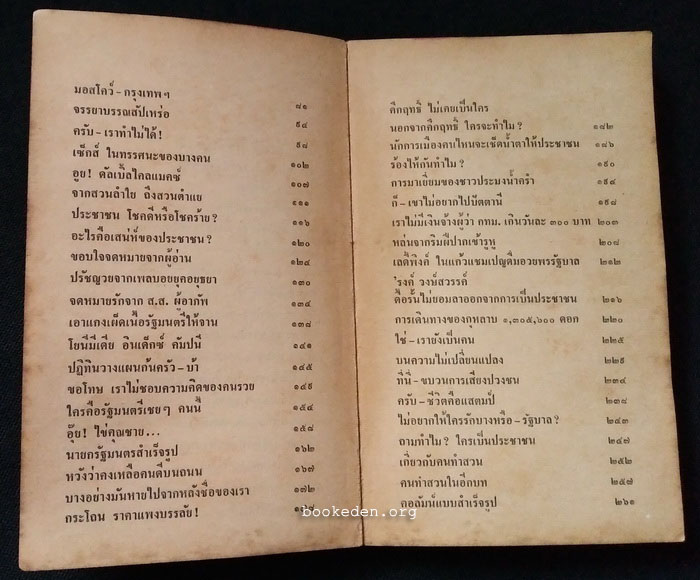 มอสโคว์ – กรุงเทพฯ
จรรยาบรรณสัปเหร่อ ๘๑
ครับ – เราทำไม่ได้! ๙๔
เซ็กส์ ในทรรศนะของบางคน ๙๘
อูย! ดับเบิ้ลไกลแมคซ์ ๑๐๒
จากสวนลำไย ถึงสวนตำแย ๑๐๗
ประชาชน โชคดีหรือโชคร้าย? ๑๑๑
อะไรคือเสน่ห์ของประชาชน? ๑๑๖
ขอบใจจดหมายจากผู้อ่าน ๑๒๐
ปรัชญวยจากเพลบอยยุคอยุธยา ๑๒๔
จดหมายรักจาก ส.ส. ผู้อาภัพ ๑๓๐
เอาแกงเผ็ดเนื้อรัฐมนตรีให้จาน ๑๓๔
โยนีมีเดีย อินเด็กซ์ คัมปนี ๑๓๘
ปฏิทินวางแผนก้นครัว – บ้า ๑๔๑
ขอโทษ เราไม่ชอบความคิดของคนรวย ๑๔๕
ใครคือรัฐมนตรีเชยๆ คนนี้ ๑๔๙
อุ๊ย! ไข่คุณชาย... ๑๕๔
นายกรัฐมนตรีสำเร็จรูป ๑๕๘
หวังว่าคงเหลือคนดีบนถนน ๑๖๒
บางอย่างมันหายไปจากหลังชื่อของเรา ๑๖๗
กระโถน ราคาแพงบรรลัย! ๑๗๒
คึกฤทธิ์ ไม่เคยเป็นใคร
นอกจากคึกฤทธิ์ ใครจะทำไม? ๑๘๒
นักการเมืองคนไหนจะเช็ดน้ำตาให้ประชาชน ๑๘๖
ร้องไห้กันทำไม? ๑๙๐
การมาเยี่ยมของชาวประมงน้ำคร่ำ ๑๙๔
ก็ – เขาไม่อยากไปปัตตานี ๑๙๘
เราไม่มีเงินจ้างผู้ว่า กทม. เกินวันละ ๓๐๐ บาท ๒๐๓
หล่นจากริมฝีปากเข้ารูหู ๒๐๘
เลดี้พิงค์ ในแก้วแชมเปญดื่มอวยพรรัฐบาล ๒๑๒
'รงค์ วงษ์สวรรค์
ดื้อรั้นไม่ยอมลาออกจากการเป็นประชาชน ๒๑๖
การเดินทางของกุหลาบ ๑,๓๐๕,๖๐๐ ดอก ๒๒๐
ใช่ – เรายังเป็นคน ๒๒๕
บนความไม่เปลี่ยนแปลง ๒๒๙
ที่นี่ – ขบวนการเสียงปวงชน ๒๓๔
ครับ – ชีวิตคือแสตมป์ ๒๓๘
ไม่อยากให้ใครรักบางหรือ – รัฐบาล? ๒๔๓
ถามทำไม? ใครเป็นประชาชน ๒๔๗
เกี่ยวกับคนทำสวน ๒๕๒
คนทำสวนในอีกบท ๒๕๗
คอลัมน์แบบสำเร็จรูป ๒๖๑
bookeden.org